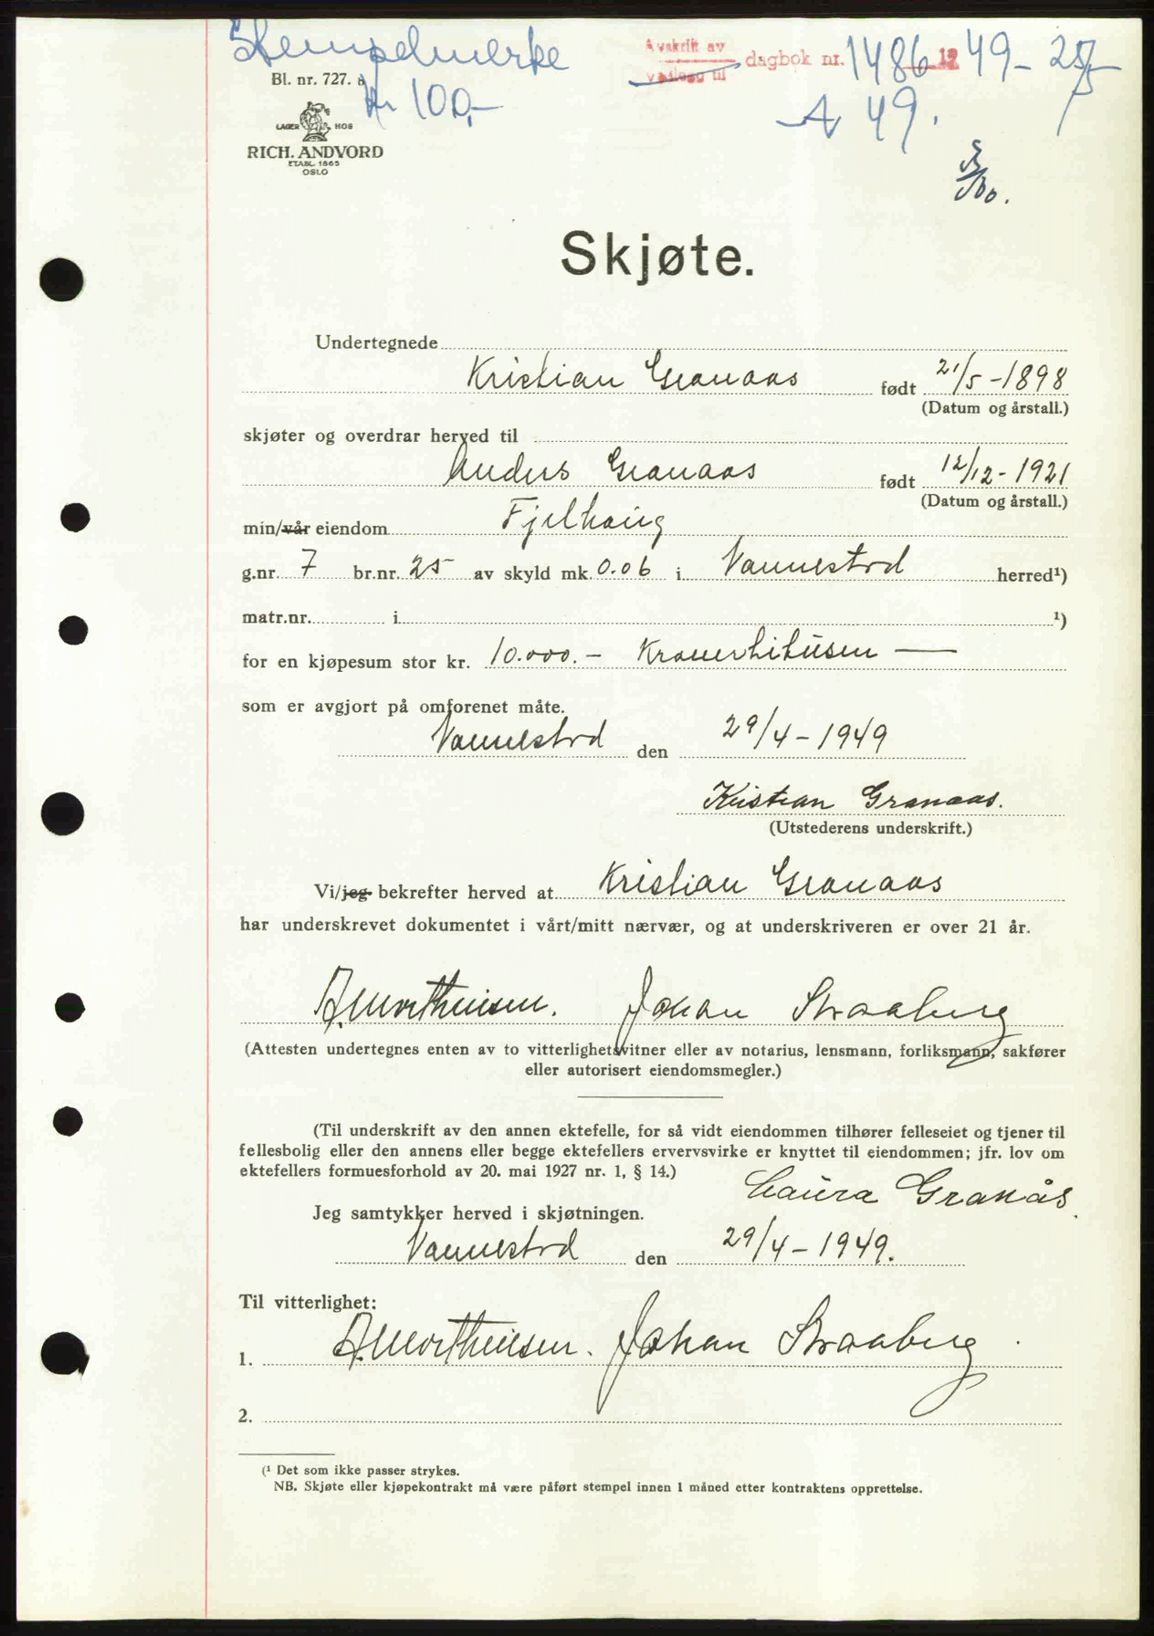 Stempelmerke
kr 100,-
Avskrift av
vedlegg til dagbok nr. 1486 19 49 - 25/5
A 49.
Bl. nr. 727. a
LAGER HOS
RICH. ANDVORD
ETABL. 1865
OSLO
Skjøte.
Undertegnede
Kristian Granaas født 21/5-1898
(Datum og årstall.)
skjøter og overdrar herved til
Anders Granaas født 12/12-1921
(Datum og årstall.)
min/vår eiendom Fjelhaug
g.nr. 7 br.nr. 25 av skyld mk. 0.06 i Vannestrd herred¹)
matr.nr. i ¹)
for en kjøpesum stor kr. 10.000.- Kronertitusen —
som er avgjort på omforenet måte.
Vannestrd den 29/4-1949
Kristian Granaas.
(Utstederens underskrift.)
Vi/jeg bekrefter herved at Kristian Granaas
har underskrevet dokumentet i vårt/mitt nærvær, og at underskriveren er over 21 år.
A. Morthensen. Johan Straaberg
(Attesten undertegnes enten av to vitterlighetsvitner eller av notarius, lensmann, forliksmann, sakfører
eller autorisert eiendomsmegler.)
(Til underskrift av den annen ektefelle, for så vidt eiendommen tilhører felleseiet og tjener til
fellesbolig eller den annens eller begge ektefellers ervervsvirke er knyttet til eiendommen; jfr. lov om
ektefellers formuesforhold av 20. mai 1927 nr. 1, § 14.)
Laura Granås.
Jeg samtykker herved i skjøtningen.
Vannestrd den 29/4-1949.
Til vitterlighet:
1. A. Morthensen. Johan Straaberg
2.
(¹ Det som ikke passer strykes.
NB. Skjøte eller kjøpekontrakt må være påført stempel innen 1 måned etter kontraktens opprettelse.